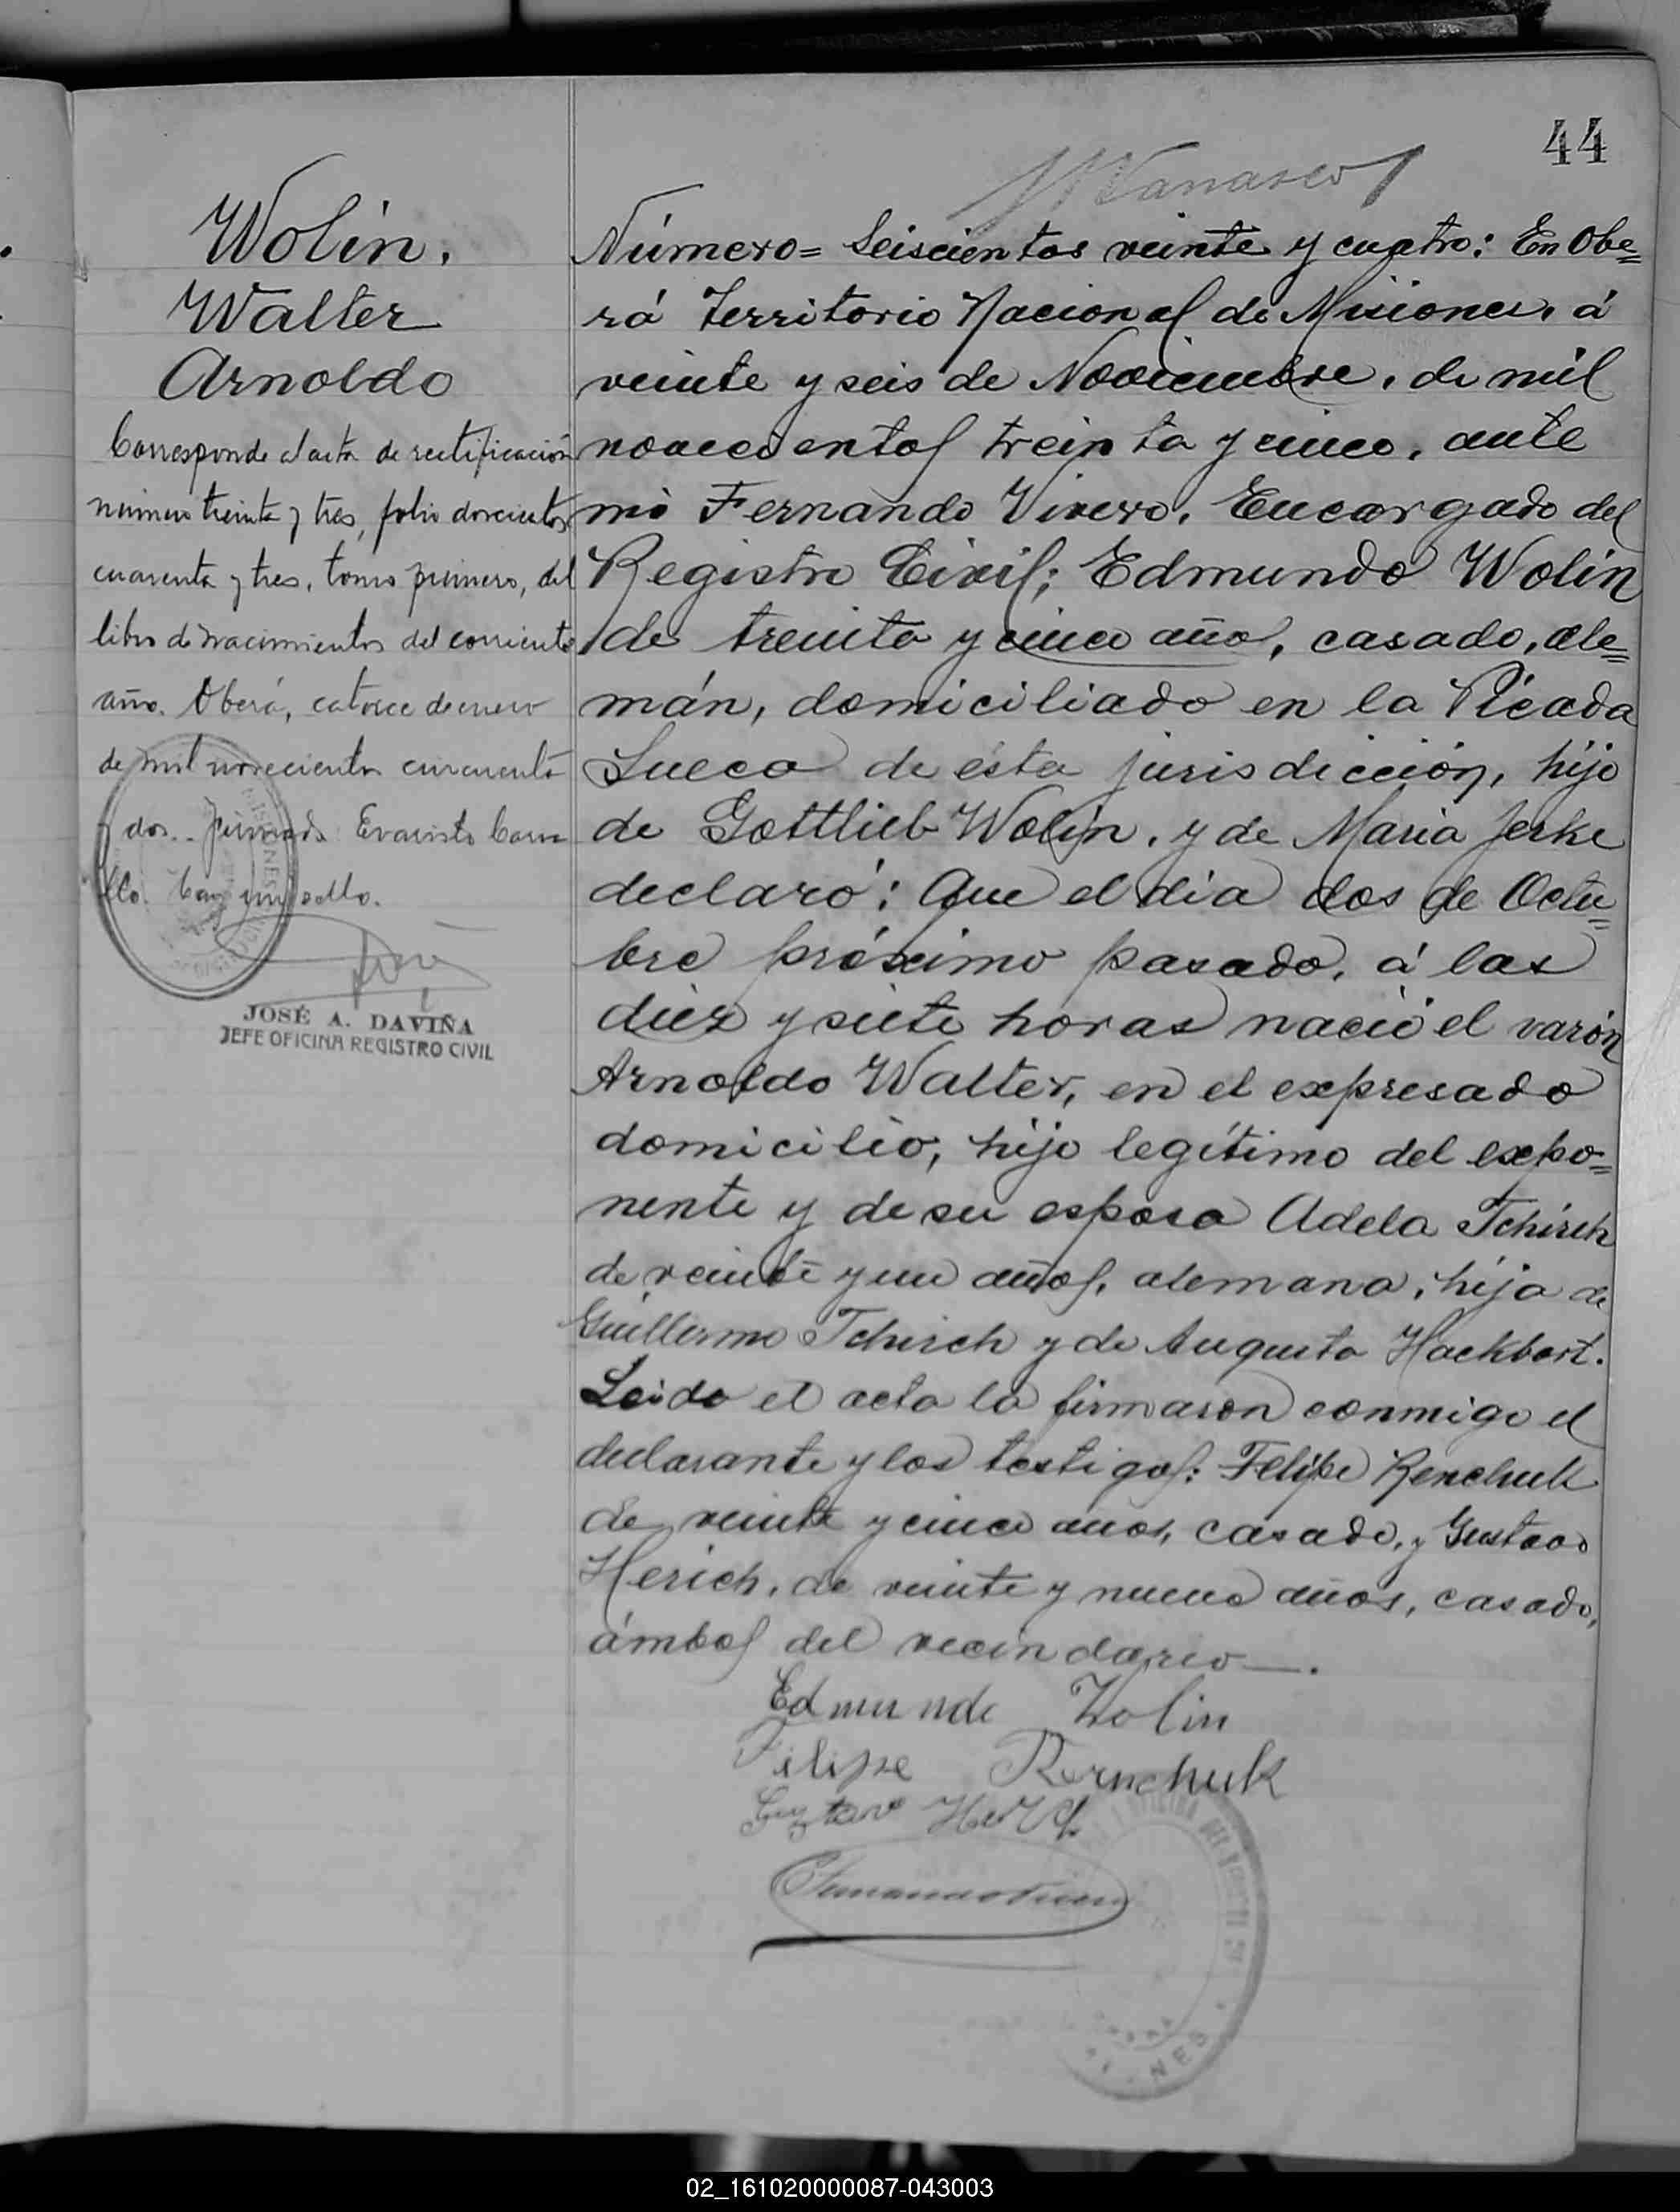 44
Wolin,
Walter
Arnoldo
Corresponde al acta de rectificación
número treinta y tres, folio doscientos
cuarenta y tres, tomo primero, del
libro de nacimientos del corriente
año. Oberá, catorce de enero
de mil novecientos cincuenta
y dos.- Firmado: Evaristo
Hay un sello.
JOSÉ A. DAVIÑA
JEFE OFICINA REGISTRO CIVIL
Número= Seiscientos veinte y cuatro: En Obe=
rá Territorio Nacional de Misiones, á
veinte y seis de Noviembre, de mil
novecientos treinta y cinco, ante
mi Fernando Vivero, Encargado del
Registro Civil; Edmundo Wolin
de treinta y cinco año, casado, ale=
mán, domiciliado en la Picada
Sueca de ésta jurisdicción, hijo
de Gottlieb Wolin, y de Maria Jerke
declaró: Que el dia dos de Octu=
bre próximo pasado, á las
diez y siete horas nació el varón
Arnoldo Walter, en el expresado
domicilio, hijo legítimo del expo=
nente y de su esposa Adela Tchirch
de veinte y un años, alemana, hija de
Guillermo Tchirch y de Augusta Hackbart.
Leida el acta la firmaron conmigo el
declarante y los testigos: Felipe Renchuk
de veinte y cinco años, casado, y Gustavo
Herich, de veinte y nueve años, casado,
ámbos del vecindario—.
Edmundo Wolin
Filipe
Gustav
02_161020000087-043003